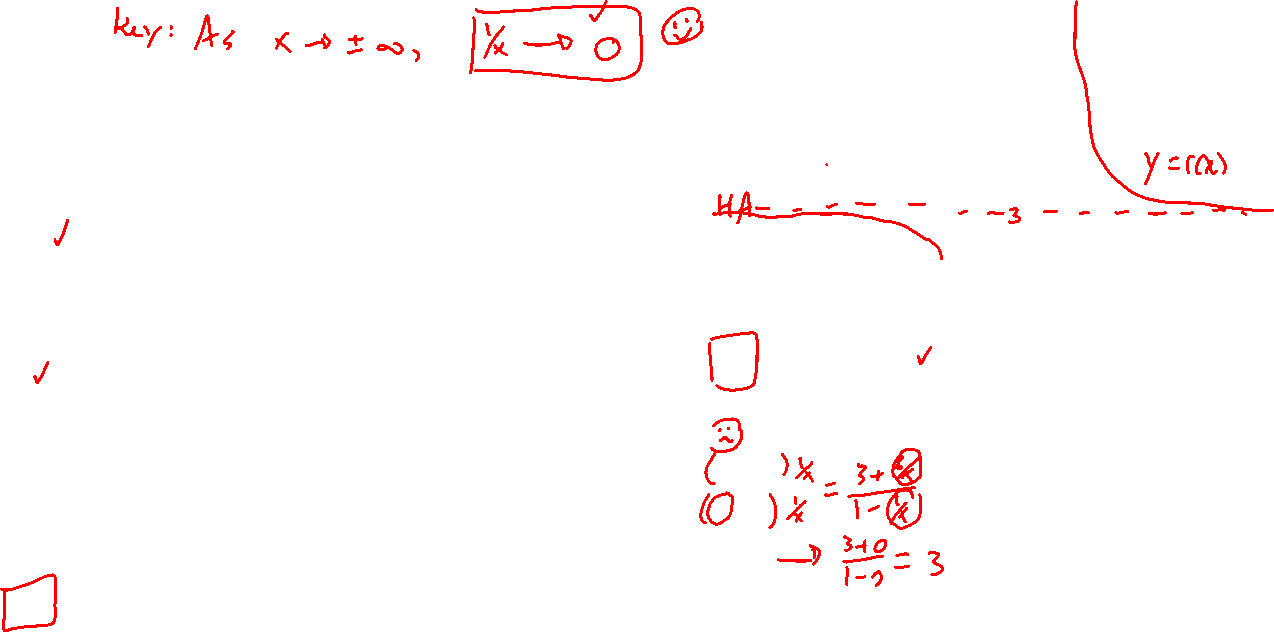 Key: As x → ± ∞, 1/x → 0
y = r(x)
HA
3
) 1/x
) 1/x
= (3 + /x)/(1 - 1/x)
→ (3+0)/(1-0) = 3